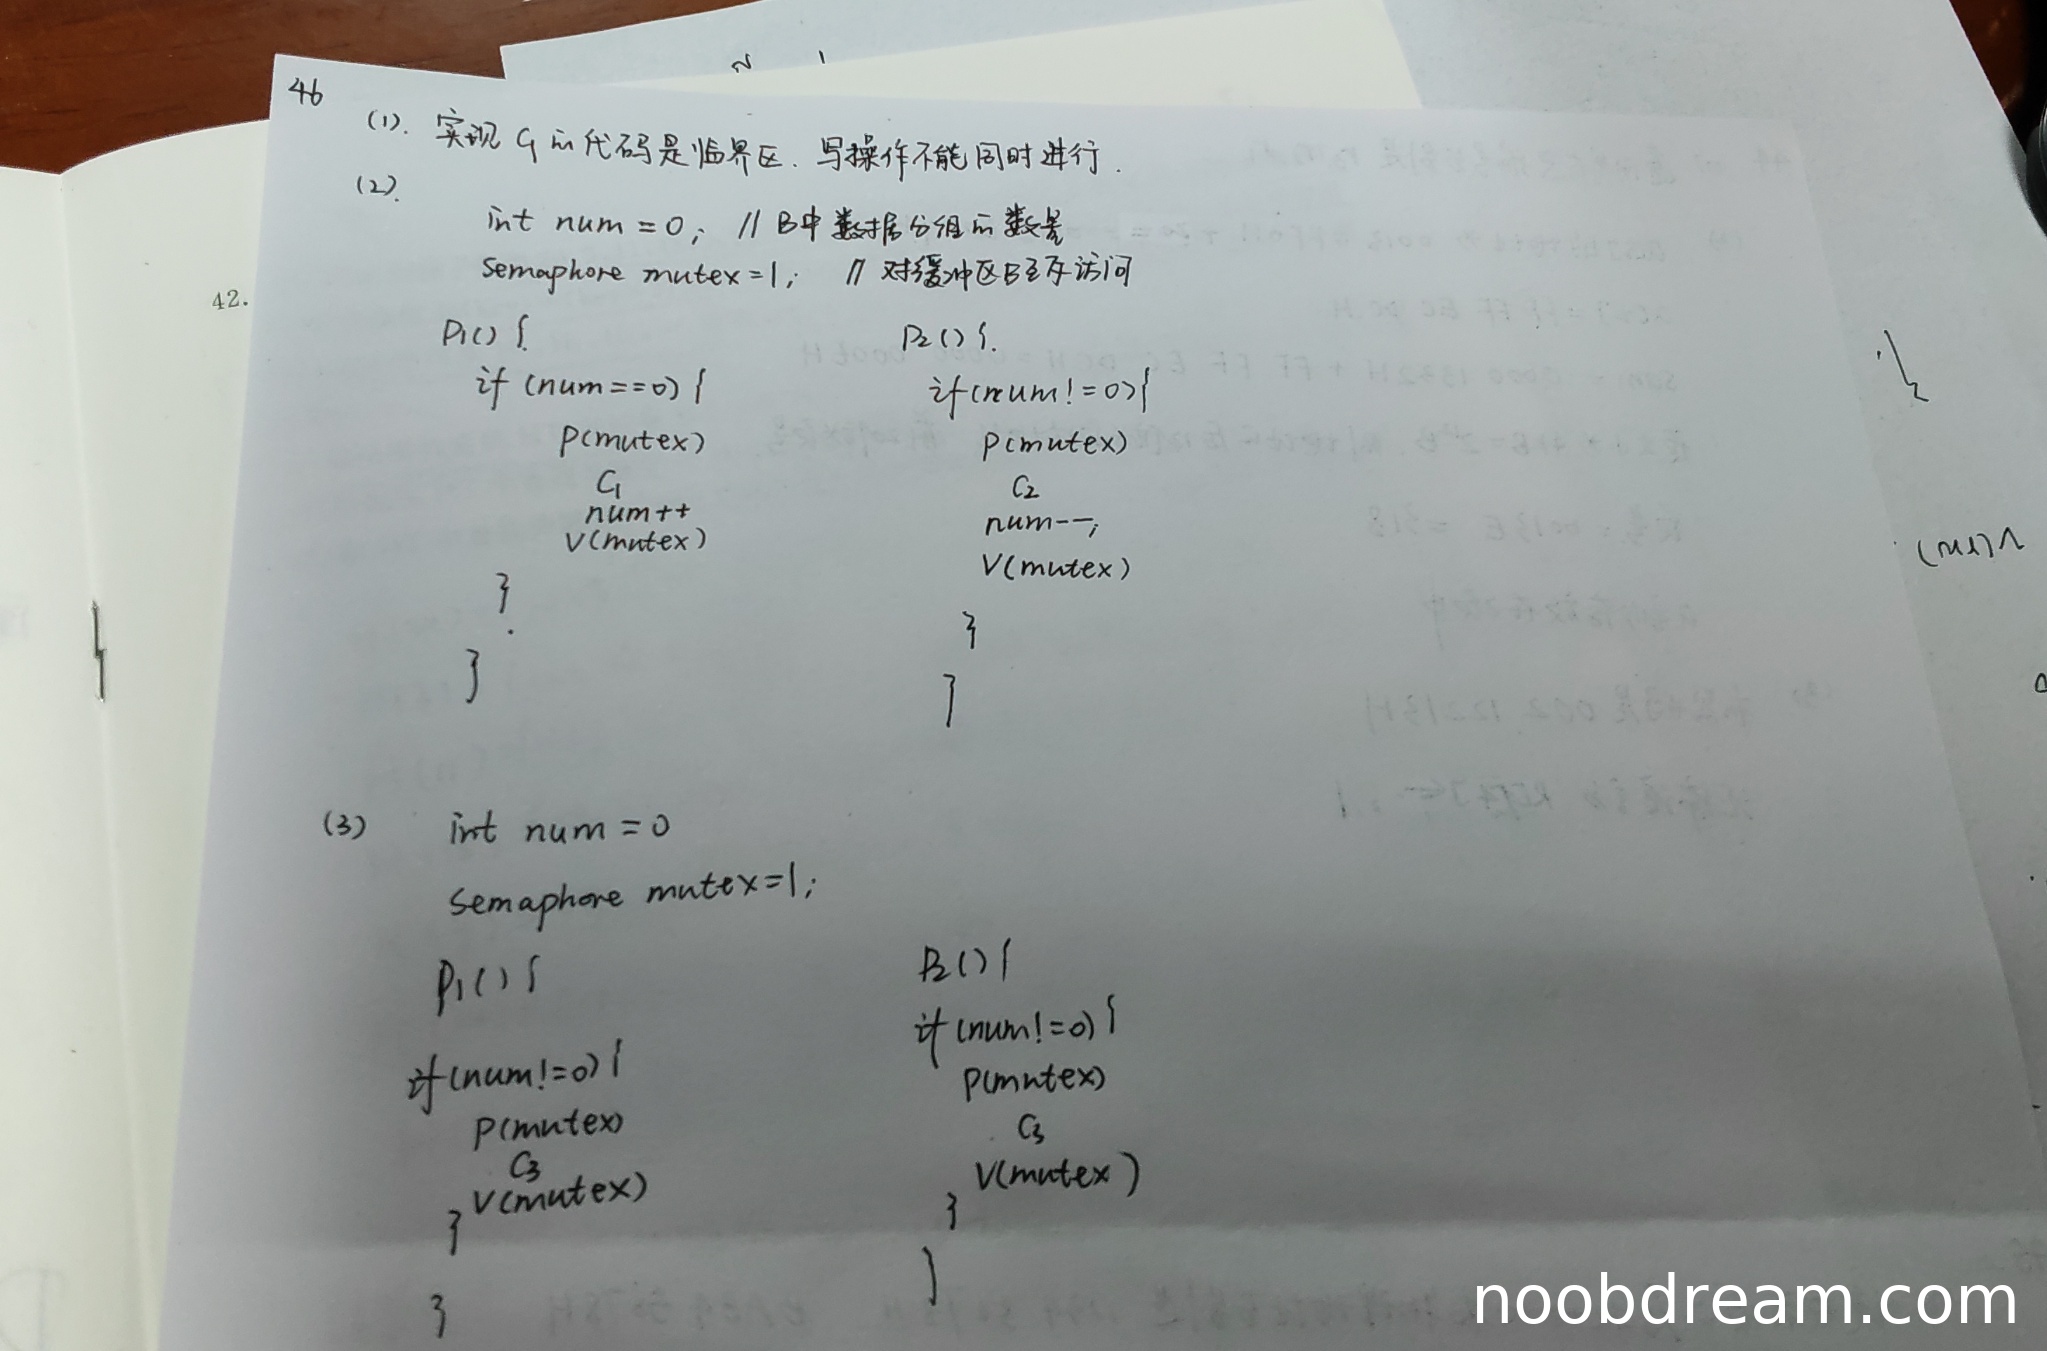 46
(1). 实现C1的代码是临界区. 写操作不能同时进行.
(2).
int num = 0; // B中数据分组的数量
semaphore mutex=1; // 对缓冲区B互斥访问
P1() {
if (num==0) {
P(mutex)
C1
num++
V(mutex)
}
}
P2() {
if(num!=0){
P(mutex)
C2
num--;
V(mutex)
}
}
(3) int num = 0
semaphore mutex=1;
P1() {
if(num!=0) {
P(mutex)
C3
V(mutex)
}
}
P2() {
if(num!=0) {
P(mutex)
C3
V(mutex)
}
}
42.
noobdream.com